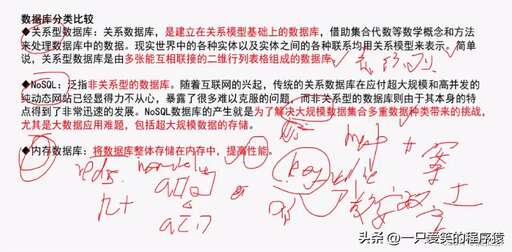 数据库分类比较
◆关系型数据库：关系数据库，是建立在关系模型基础上的数据库，借助集合代数等数学概念和方法
来处理数据库中的数据。现实世界中的各种实体以及实体之间的各种联系均用关系模型来表示。简单
说，关系型数据库是由多张能互相联接的二维行列表格组成的数据库。
◆NoSQL：泛指非关系型的数据库。随着互联网的兴起，传统的关系数据库在应付超大规模和高并发的
纯动态网站已经显得力不从心，暴露了很多难以克服的问题，而非关系型的数据库则由于其本身的特
点得到了非常迅速的发展。NoSQL数据库的产生就是为了解决大规模数据集合多重数据种类带来的挑战，
尤其是大数据应用难题，包括超大规模数据的存储。
◆内存数据库：将数据库整体存储在内存中，提高性能。
key
头条 @一只爱笑的程序猿